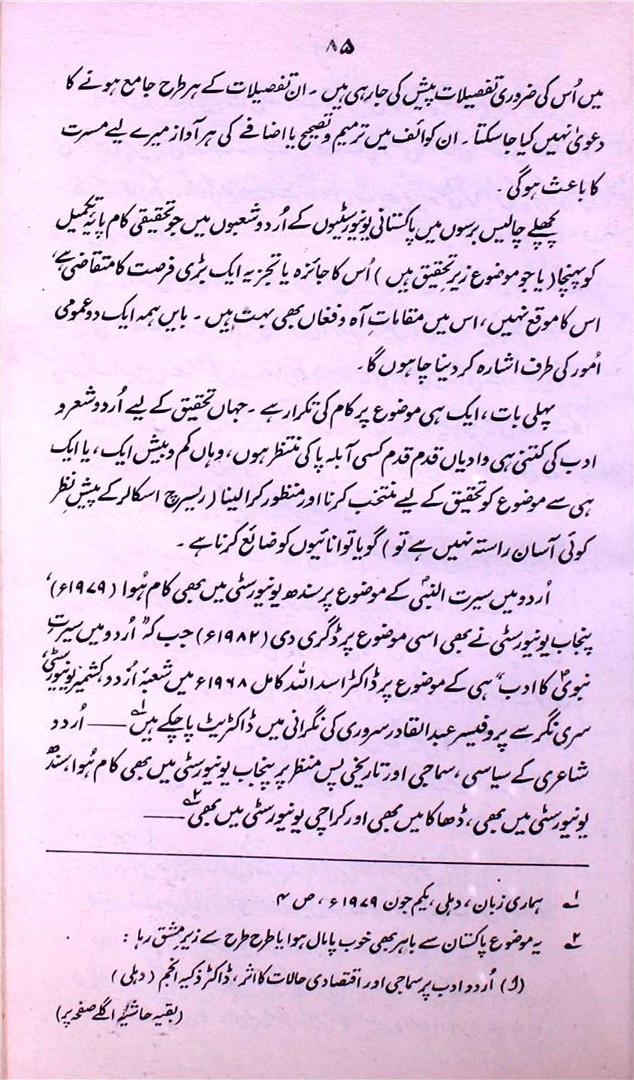 ۸۵
میں اُس کی ضروری تفصیلات پیش کی جا رہی ہیں ۔ ان تفصیلات کے ہر طرح جامع ہونے کا
دعویٰ نہیں کیا جا سکتا ۔ ان کوائف میں ترمیم و تصحیح یا اضافے کی ہر آواز میرے لیے مسرت
کا باعث ہو گی ۔
پچھلے چالیس برسوں میں پاکستانی یونیورسٹیوں کے اُردو شعبوں میں جو تحقیقی کام پایۂ تکمیل
کو پہنچا (یا جو موضوع زیرِ تحقیق ہیں) اُس کا جائزہ یا تجزیہ ایک بڑی فرصت کا متقاضی ہے،
اس کا موقع نہیں، اس میں مقاماتِ آہ و فغاں بھی بہت ہیں ۔ بایں ہمہ ایک دو عمومی
اُمور کی طرف اشارہ کر دینا چاہوں گا۔
پہلی بات، ایک ہی موضوع پر کام کی تکرار ہے ۔ جہاں تحقیق کے لیے اُردو شعر و
ادب کی کتنی ہی وادیاں قدم قدم کسی آبلہ پا کی منتظر ہوں، وہاں کم و بیش ایک، یا ایک
ہی سے موضوع کو تحقیق کے لیے منتخب کرنا اور منظور کرا لینا (ریسرچ اسکالر کے پیشِ نظر
کوئی آسان راستہ نہیں ہے تو) گویا توانائیوں کو ضائع کرنا ہے ۔
اُردو میں سیرت النبیؐ کے موضوع پر سندھ یونیورسٹی میں بھی کام ہُوا (۱۹۷۹ء)،
پنجاب یونیورسٹی نے بھی اسی موضوع پر ڈگری دی (۱۹۸۲ء) جب کہ "اُردو میں سیرتِ
نبویؐ کا ادب" ہی کے موضوع پر ڈاکٹر اسد اللہ کامل ۱۹۶۸ء میں شعبۂ اُردو، کشمیر یونیورسٹی،
سری نگر سے پروفیسر عبد القادر سروری کی نگرانی میں ڈاکٹریٹ پا چکے ہیں۱؎ —— اُردو
شاعری کے سیاسی، سماجی اور تاریخی پس منظر پر پنجاب یونیورسٹی میں بھی کام ہُوا، سندھ
یونیورسٹی میں بھی، ڈھاکا میں بھی اور کراچی یونیورسٹی میں بھی۲؎ ——
۱؎ ہماری زبان، دہلی، یکم جون ۱۹۷۹ء، ص ۴
۲؎ یہ موضوع پاکستان سے باہر بھی خوب پامال ہوا یا طرح طرح سے زیرِ مشق رہا :
(ا) اُردو ادب پر سماجی اور اقتصادی حالات کا اثر، ڈاکٹر ذکیہ انجم (دہلی)
(بقیہ حاشیہ اگلے صفحہ پر)